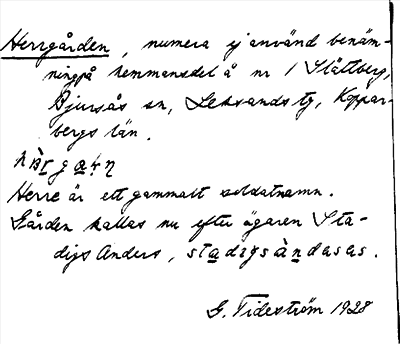 Herrgården, numera ej använd benäm-
ning på hemmansdel å nr 1 Slättberg,
Bjursås sn, Leksands tg, Koppar-
bergs län.
Herre är ett gammalt soldatnamn.
Gården kallas nu efter ägaren Sta-
digs Anders, stadigsàndasas.
G. Tideström 1928